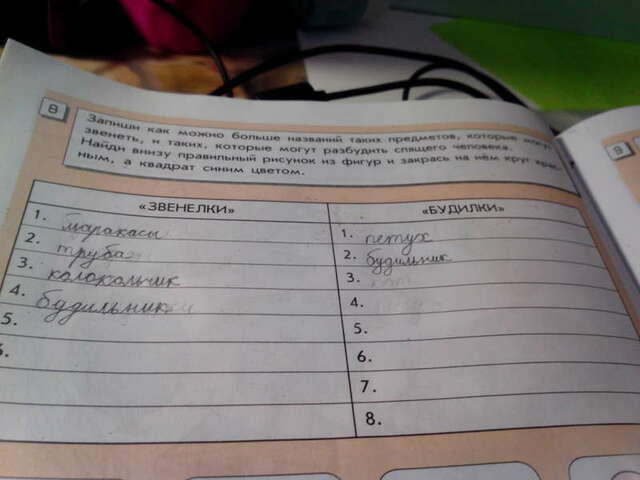 8
Запиши как можно больше названий таких предметов, которые могут
звенеть, и таких, которые могут разбудить спящего человека.
Найди внизу правильный рисунок из фигур и закрась на нём круг крас-
ным, а квадрат синим цветом.
9
«ЗВЕНЕЛКИ» «БУДИЛКИ»
1. маракасы 1. петух
2. труба 2. будильник
3. колокольчик 3.
4. будильник 4.
5. 5.
6. 6.
7.
8.